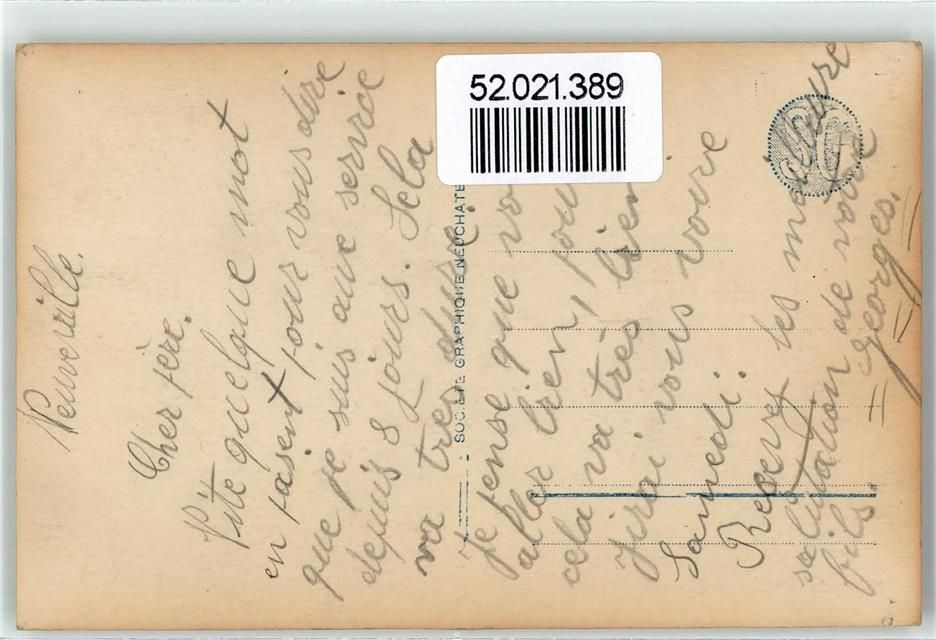 Neuveville.
Cher père.
Vite quelque mot
en pasent pour vous dire
que je suis aux service
depuis 8 jours. Sela
va tres dure.
Je pense que
aller bien,
cela va très bien
jirai vous voire
Samedi.
Recevez les meilleure
salutation de votre
fils Georges.
52.021.389
SOCIÉTÉ GRAPHIQUE NEUCHATE
SG